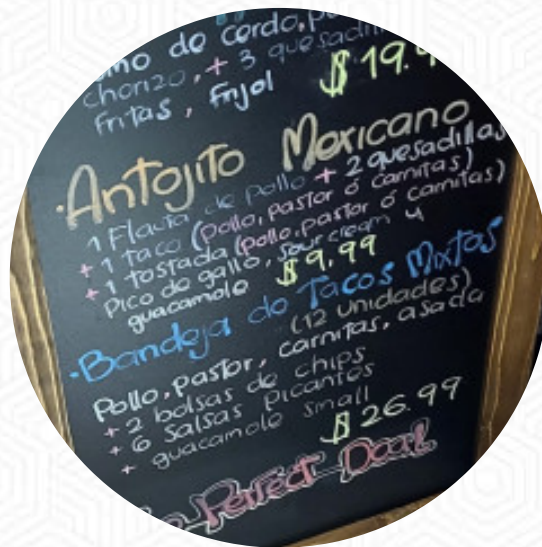 de cerdo,
chorizo, + 3
fritas, frijol $19.
·Antojito Mexicano
1 Flauta de pollo + 2 quesadillas
+ 1 taco (pollo, pastor ó carnitas)
+ 1 tostada (pollo, pastor ó carnitas)
Pico de gallo, sour cream y
guacamole $9.99
·Bandeja de Tacos Mixtos
(12 unidades)
Pollo, pastor, carnitas, asada
+ 2 bolsas de chips
+ 6 salsas picantes
+ guacamole small
$26.99
Perfect Deal